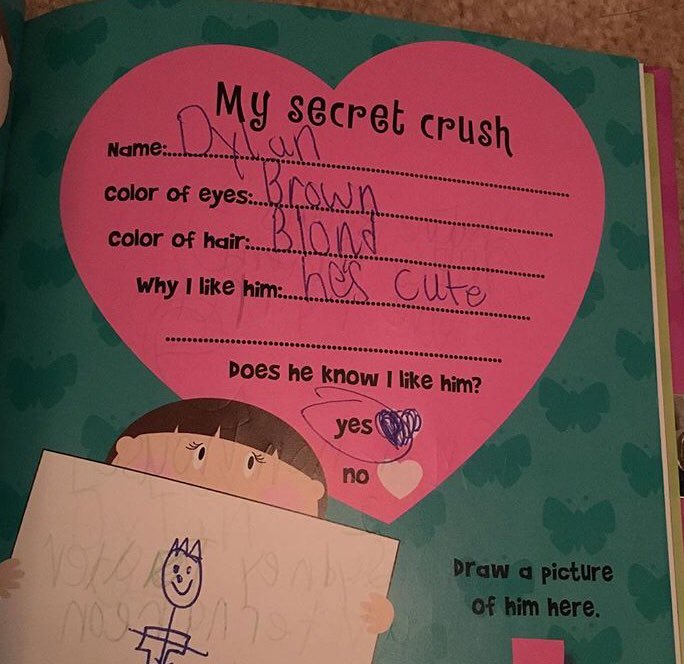 My secret crush
Name: Dylan
Color of eyes: Brown
Color of hair: Blond
Why I like him: he's cute
Does he know I like him?
yes
no
Draw a picture
of him here.